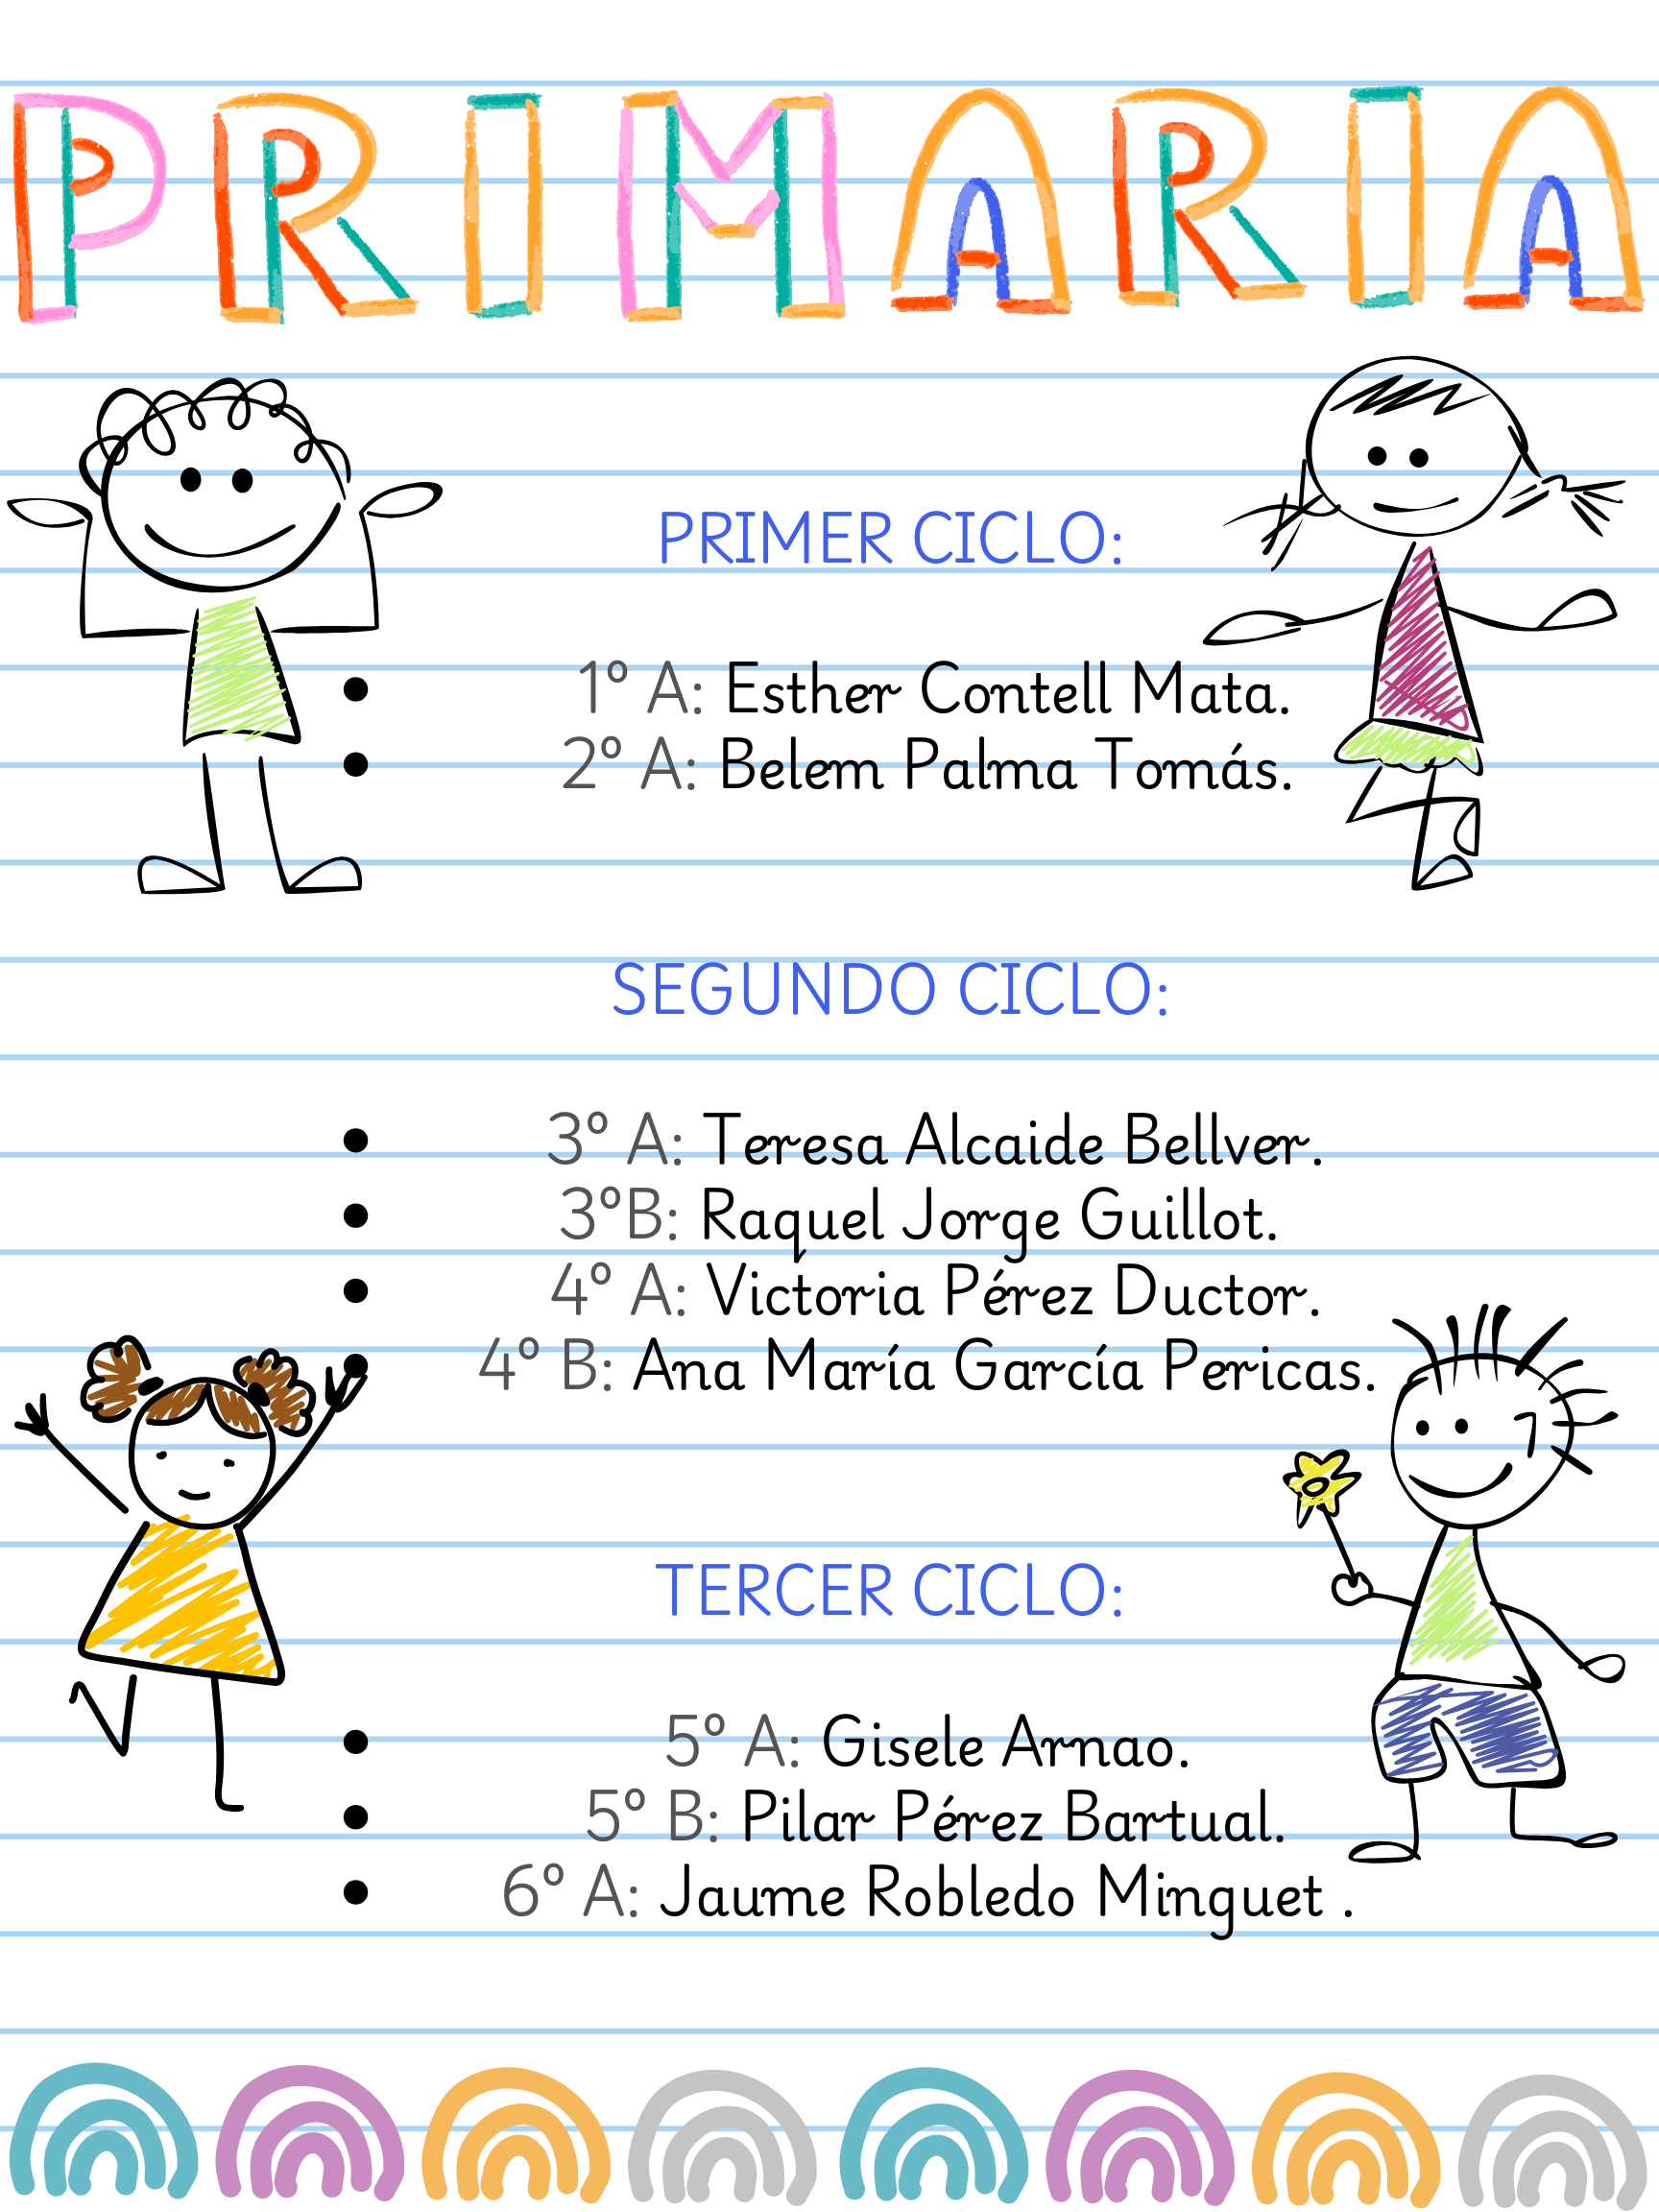 PRIMARIA
PRIMER CICLO:
• 1º A: Esther Contell Mata.
• 2º A: Belem Palma Tomás.
SEGUNDO CICLO:
• 3º A: Teresa Alcaide Bellver.
• 3ºB: Raquel Jorge Guillot.
• 4º A: Victoria Pérez Ductor.
• 4º B: Ana María García Pericas.
TERCER CICLO:
• 5º A: Gisele Arnao.
• 5º B: Pilar Pérez Bartual.
• 6º A: Jaume Robledo Minguet .